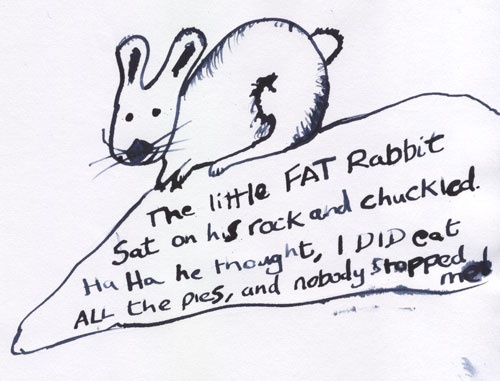 The little FAT Rabbit
Sat on his rock and chuckled.
Ha Ha he thought, I DID eat
ALL the pies, and nobody stopped
me!